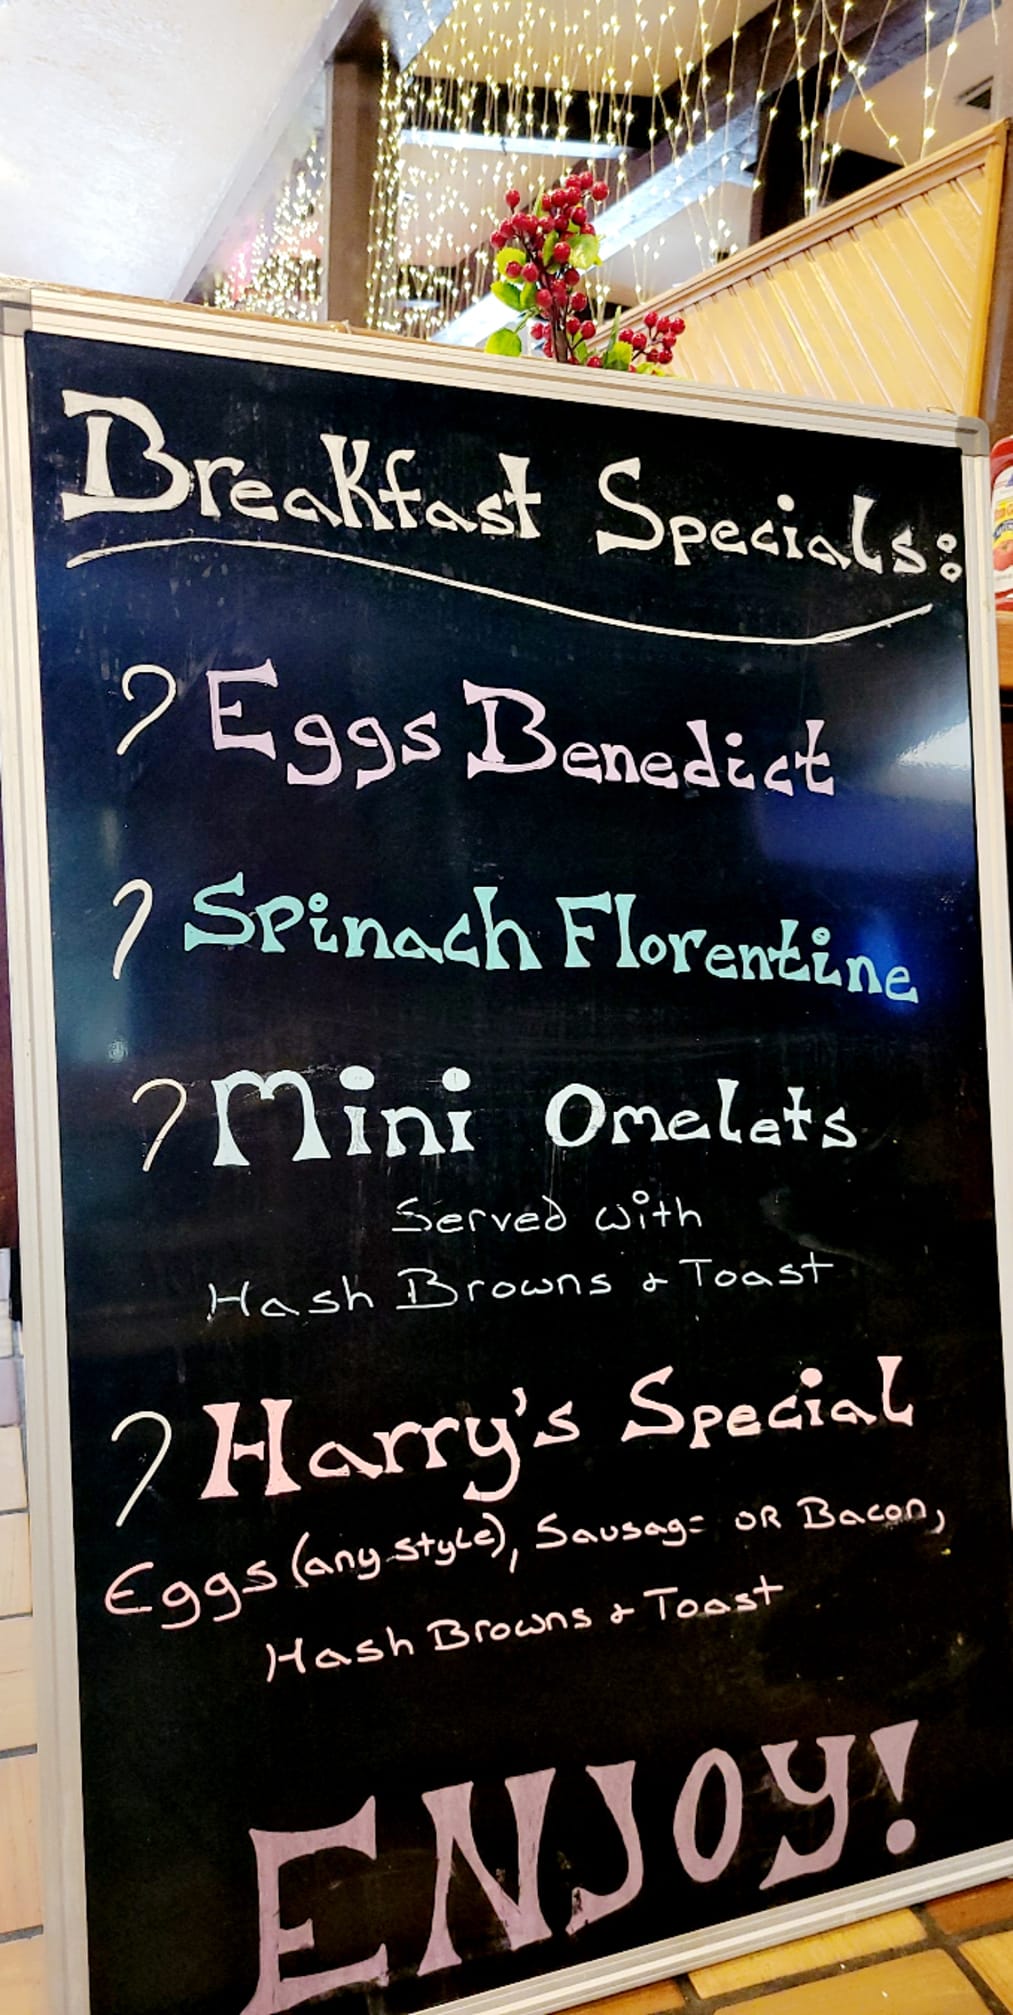 Breakfast Specials:
Eggs Benedict
Spinach Florentine
Mini Omelets
Served with
Hash Browns & Toast
Harry's Special
Eggs (any style), Sausage OR Bacon,
Hash Browns & Toast
ENJOY!